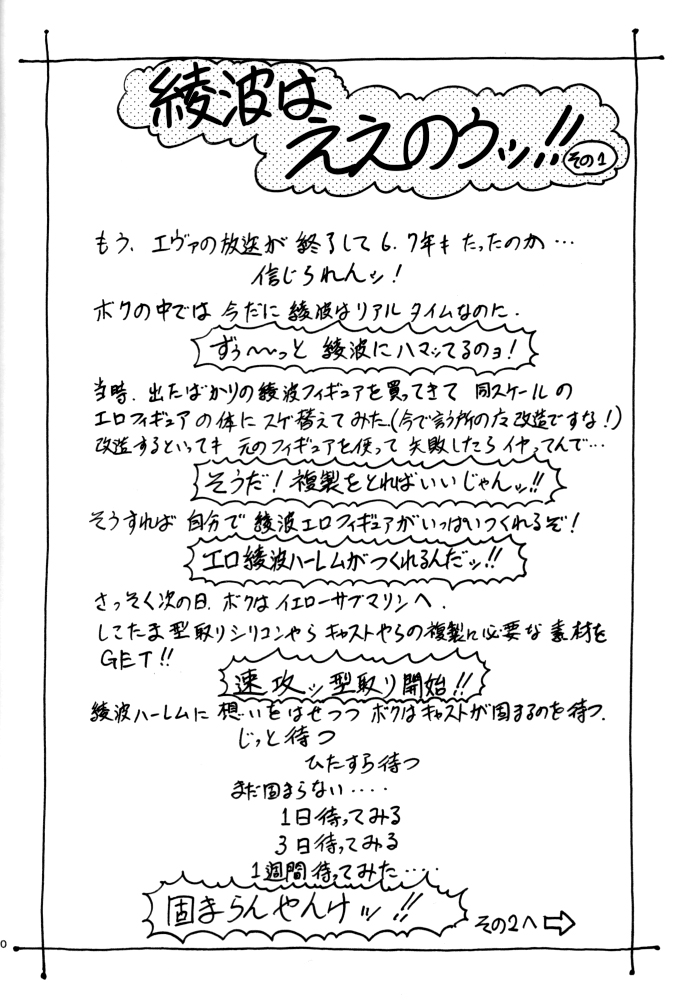 綾波は
ええのウッ!!
その1
もう、エヴァの放送が終了して6.7年もたったのか…
信じられんッ!
ボクの中では今だに綾波はリアルタイムなのに.
ずぅ〜〜っと綾波にハマッてるのョ!
当時.出たばかりの綾波フィギュアを買ってきて同スケールの
エロフィギュアの体にスゲ替えてみた.(今で言う所の左改造ですな!)
改造するといっても元のフィギュアを使って失敗したらイヤってんで…
そうだ!複製をとればいいじゃんッ!!
そうすれば自分で綾波エロフィギュアがいっぱいつくれるぞ!
エロ綾波ハーレムがつくれるんだッ!!
さっそく次の日.ボクはイエローサブマリンへ.
しこたま型取りシリコンやらキャストやらの複製に必要な素材を
GET!!
速攻ッ型取り開始!!
綾波ハーレムに想いをはせつつボクはキャストが固まるのを待つ.
じっと待つ
ひたすら待つ
まだ固まらない....
1日待ってみる
3日待ってみる
1週間待ってみた....
固まらんやんけッ!!
その2へ⇨
0